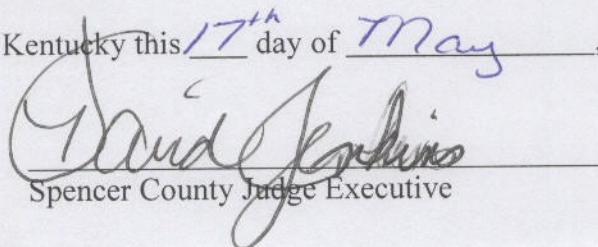 Kentucky this 17th day of May,
David Jenkins
Spencer County Judge Executive